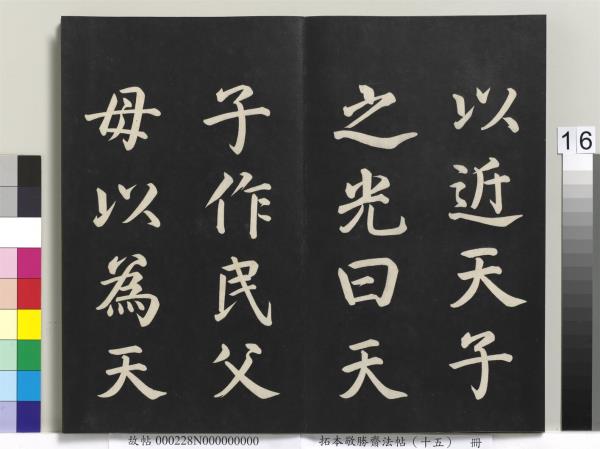 以近天子
之光曰天
子作民父
毋以為天
16
故帖 000228N000000000
拓本敬勝齋法帖（十五） 冊